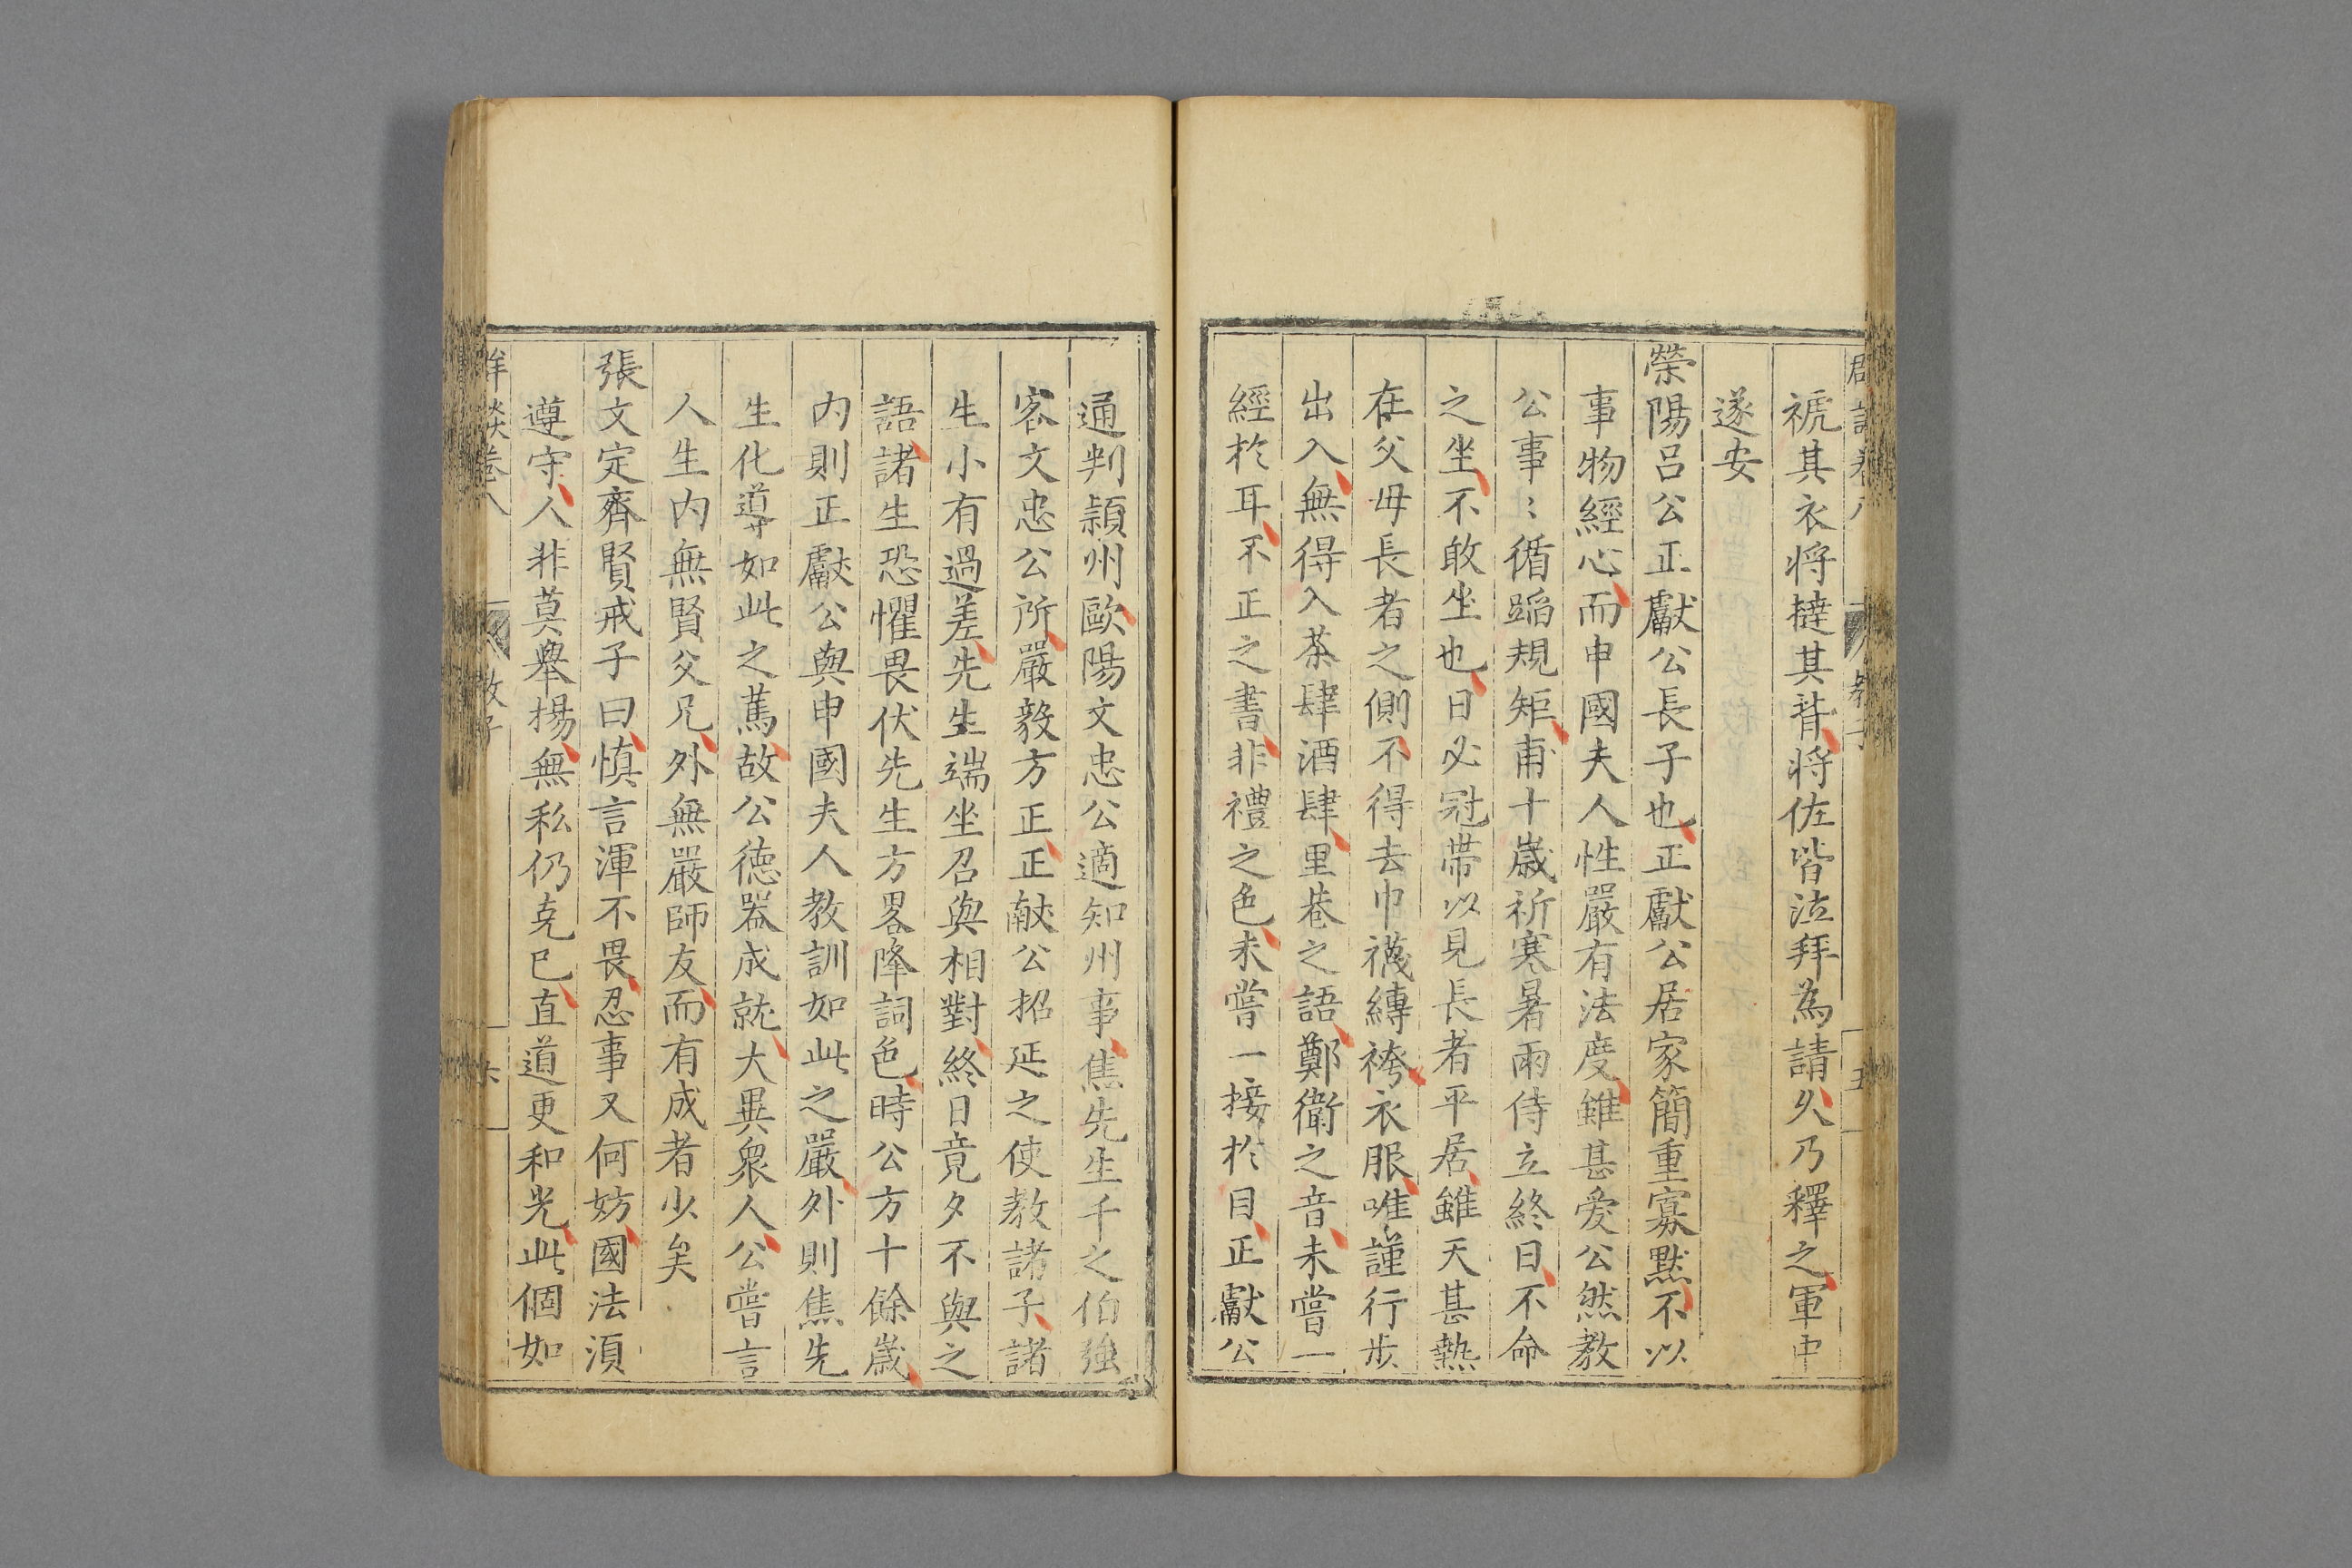 褫其衣将撻其背将佐皆泣拜為請久乃釋之軍中
遂安
榮陽呂公正獻公長子也正獻公居家簡重寡黙不以
事物經心而申國夫人性嚴有法度雖甚愛公然教
公事〻循蹈規矩甫十歲祈寒暑雨侍立終日不命
之坐不敢坐也日必冠帶以見長者平居雖天甚熱
在父母長者之側不得去巾襪縳袴衣服唯謹行步
出入無得入茶肆酒肆里巷之語鄭衛之音未嘗一
經於耳不正之書非禮之色未嘗一接於目正獻公
通判潁州歐陽文忠公適知州事焦先生千之伯強
客文忠公所嚴毅方正正献公招延之使教諸子諸
生小有過差先生端坐召與相對終日竟夕不與之
語諸生恐懼畏伏先生方畧降詞色時公方十餘歲
內則正獻公與申國夫人教訓如此之嚴外則焦先
生化導如此之篤故公德器成就大異衆人公嘗言
人生内無賢父兄外無嚴師友而有成者少矣
張文定齊賢戒子曰慎言渾不畏忍事又何妨國法湏
遵守人非莫舉揚無私仍克己直道更和光此個如